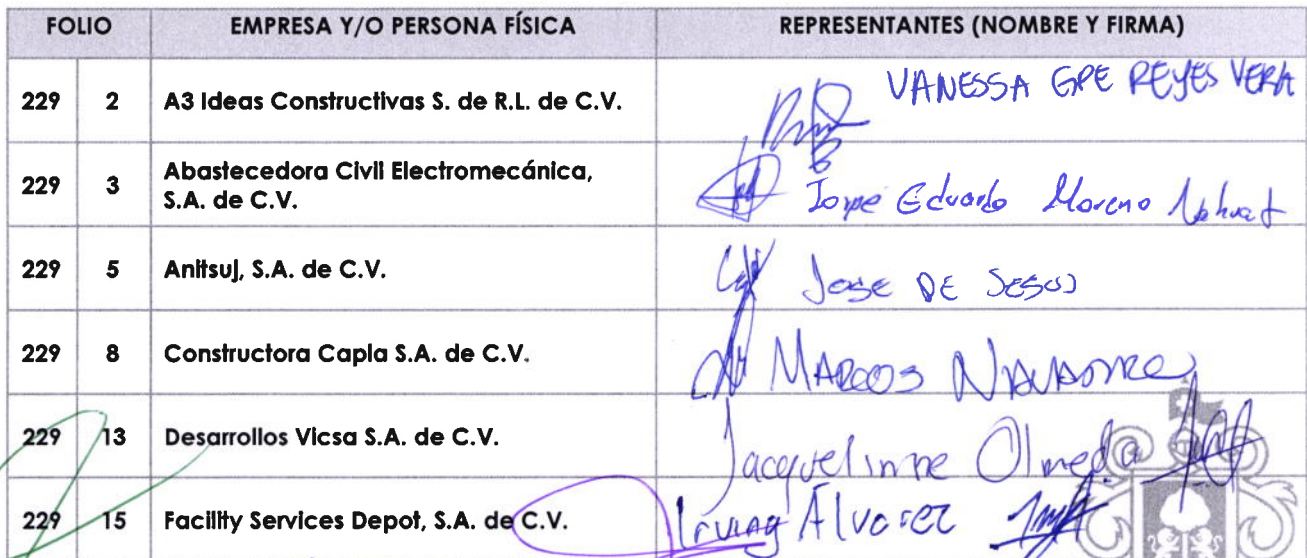 FOLIO EMPRESA Y/O PERSONA FÍSICA REPRESENTANTES (NOMBRE Y FIRMA)
229 2 A3 Ideas Constructivas S. de R.L. de C.V. VANESSA GPE REYES VERA
229 3 Abastecedora Civil Electromecánica,
S.A. de C.V. Jorge Eduardo Moreno
229 5 Anitsuj, S.A. de C.V. JOSE DE JESUS
229 8 Constructora Capla S.A. de C.V. MARCOS
229 13 Desarrollos Vicsa S.A. de C.V. Jacquelinne Olmeda
229 15 Facility Services Depot, S.A. de C.V. Irving Álvarez